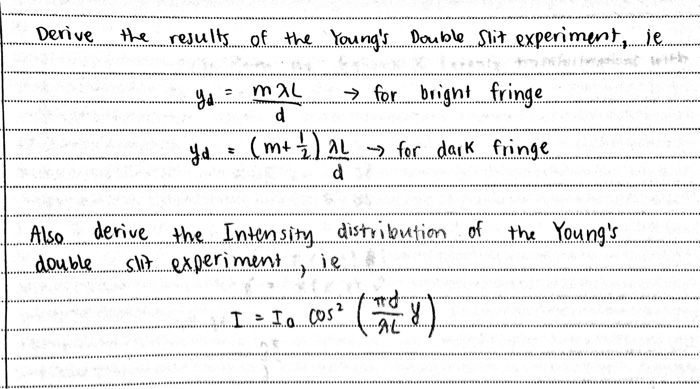 Derive the results of the Young's Double Slit experiment, ie
y_d = mλL/d → for bright fringe
y_d = (m+1/2) λL/d → for dark fringe
Also derive the Intensity distribution of the Young's
double slit experiment, ie
I = I_0 cos² (πd/λL y)